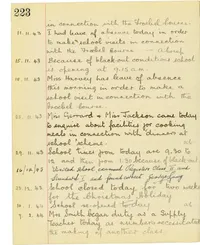 223
in connection with the Froebel course.
11.11.43 I had leave of absence today in order
to make school visits in connection
with the Froebel course
15.11.43 Because of black-out conditions school
is opening at 9.15 a.m.
19.11.43 Miss Harvey has leave of absence
this morning in order to make a
school visit in connection with the
Froebel course.
Mrs Gerrard & Miss Jackson came today
to enquire about facilities for cooking
meals in connection with dinners at
school scheme.
School times from today are 9.30 to
12 and then from 1.30 because of black-out
16/12/43 Visited school examined Registers
School closed today for two weeks
for the Christmas holiday
School reopened today
Mrs Smith began duty as a Supply
Teacher today as numbers necessitated
the making of another class.